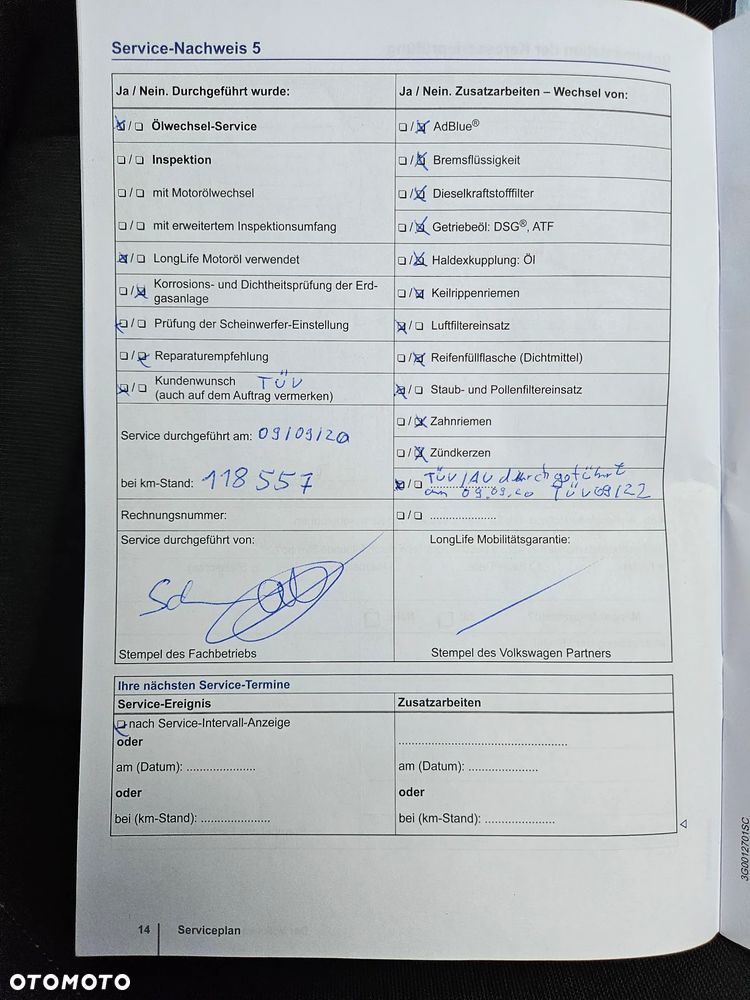 Service-Nachweis 5
Ja / Nein. Durchgeführt wurde:
Ja / Nein. Zusatzarbeiten – Wechsel von:
☒/☐ Ölwechsel-Service
☐/☒ AdBlue®
☐/☐ Inspektion
☐/☒ Bremsflüssigkeit
☐/☐ mit Motorölwechsel
☐/☒ Dieselkraftstofffilter
☐/☐ mit erweitertem Inspektionsumfang
☐/☒ Getriebeöl: DSG®, ATF
☒/☐ LongLife Motoröl verwendet
☐/☒ Haldexkupplung: Öl
☐/☒ Korrosions- und Dichtheitsprüfung der Erd-
gasanlage
☐/☒ Keilrippenriemen
☒/☐ Prüfung der Scheinwerfer-Einstellung
☒/☐ Luftfiltereinsatz
☐/☒ Reparaturempfehlung
☐/☒ Reifenfüllflasche (Dichtmittel)
☒/☐ Kundenwunsch TÜV
(auch auf dem Auftrag vermerken)
☒/☐ Staub- und Pollenfiltereinsatz
☐/☒ Zahnriemen
Service durchgeführt am: 09/09/20
☐/☒ Zündkerzen
bei km-Stand: 118 557
☒/☐ TÜV/AU durchgeführt
am 09.09.20 TÜV 09/22
Rechnungsnummer:
☐/☐ .....................
Service durchgeführt von:
LongLife Mobilitätsgarantie:
Stempel des Fachbetriebs
Stempel des Volkswagen Partners
Ihre nächsten Service-Termine
Service-Ereignis
Zusatzarbeiten
☒ nach Service-Intervall-Anzeige
oder
am (Datum): .....................
am (Datum): .....................
oder
oder
bei (km-Stand): .....................
bei (km-Stand): .....................
3G0012701SC
14 Serviceplan
OTOMOTO